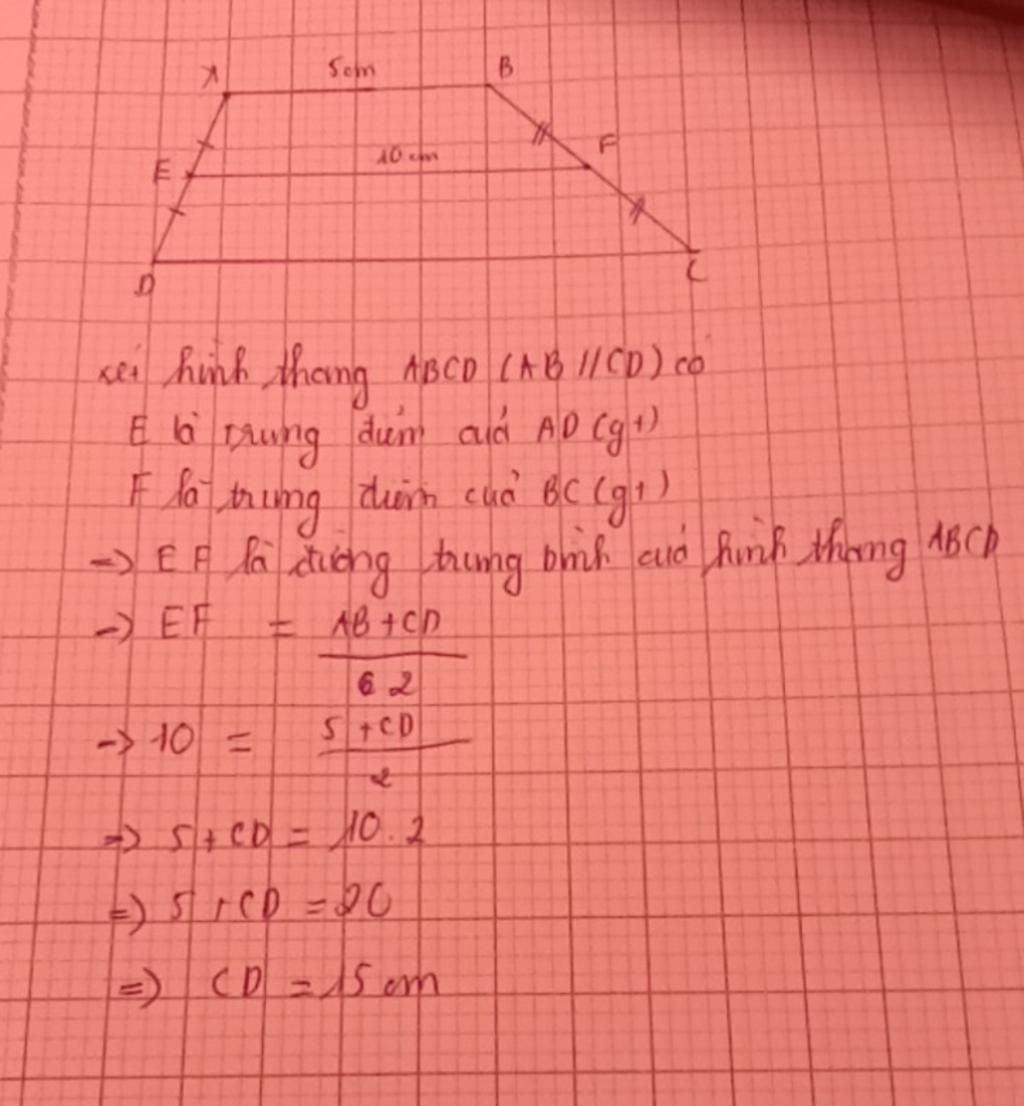 A 5cm B
E 10 cm F
D C
xét hình thang ABCD (AB // CD) có
E là trung điểm của AD (gt)
F là trung điểm của BC (gt)
=> EF là đường trung bình của hình thang ABCD
=> EF = AB + CD
2
=> 10 = 5 + CD
2
=> 5 + CD = 10.2
=> 5 + CD = 20
=> CD = 15 cm